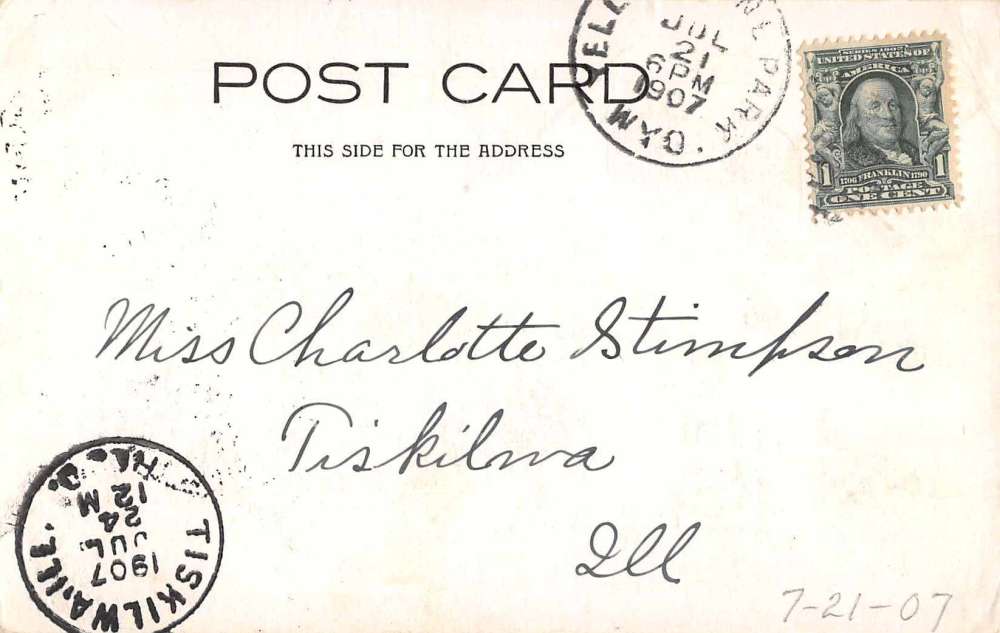 POST CARD
THIS SIDE FOR THE ADDRESS
PARK
WYO.
JUL
21
6 PM
1907
SERIES 1902
UNITED STATES OF
AMERICA
1 1
1706 FRANKLIN 1790
POSTAGE
ONE CENT
Miss Charlotte Stimpson
Tiskilwa
Ill
TISKILWA, ILL.
1907
JUL
24
12 M
7-21-07